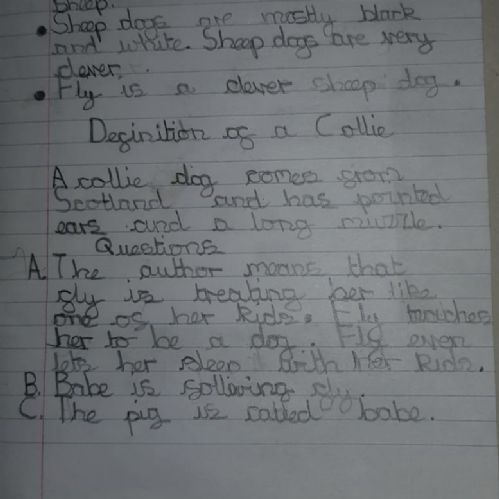 Sheep.
• Sheep dogs are mostly black
and white. Sheep dogs are very
clever.
• Fly is a clever sheep dog.
Definition of a Collie
A collie dog comes from
Scotland and has pointed
ears and a long muzzle.
Questions
A. The author means that
fly is treating her like
one of her kids. Fly teaches
her to be a dog. Fly even
lets her sleep with her kids.
B. Babe is following fly.
C. The pig is called babe.